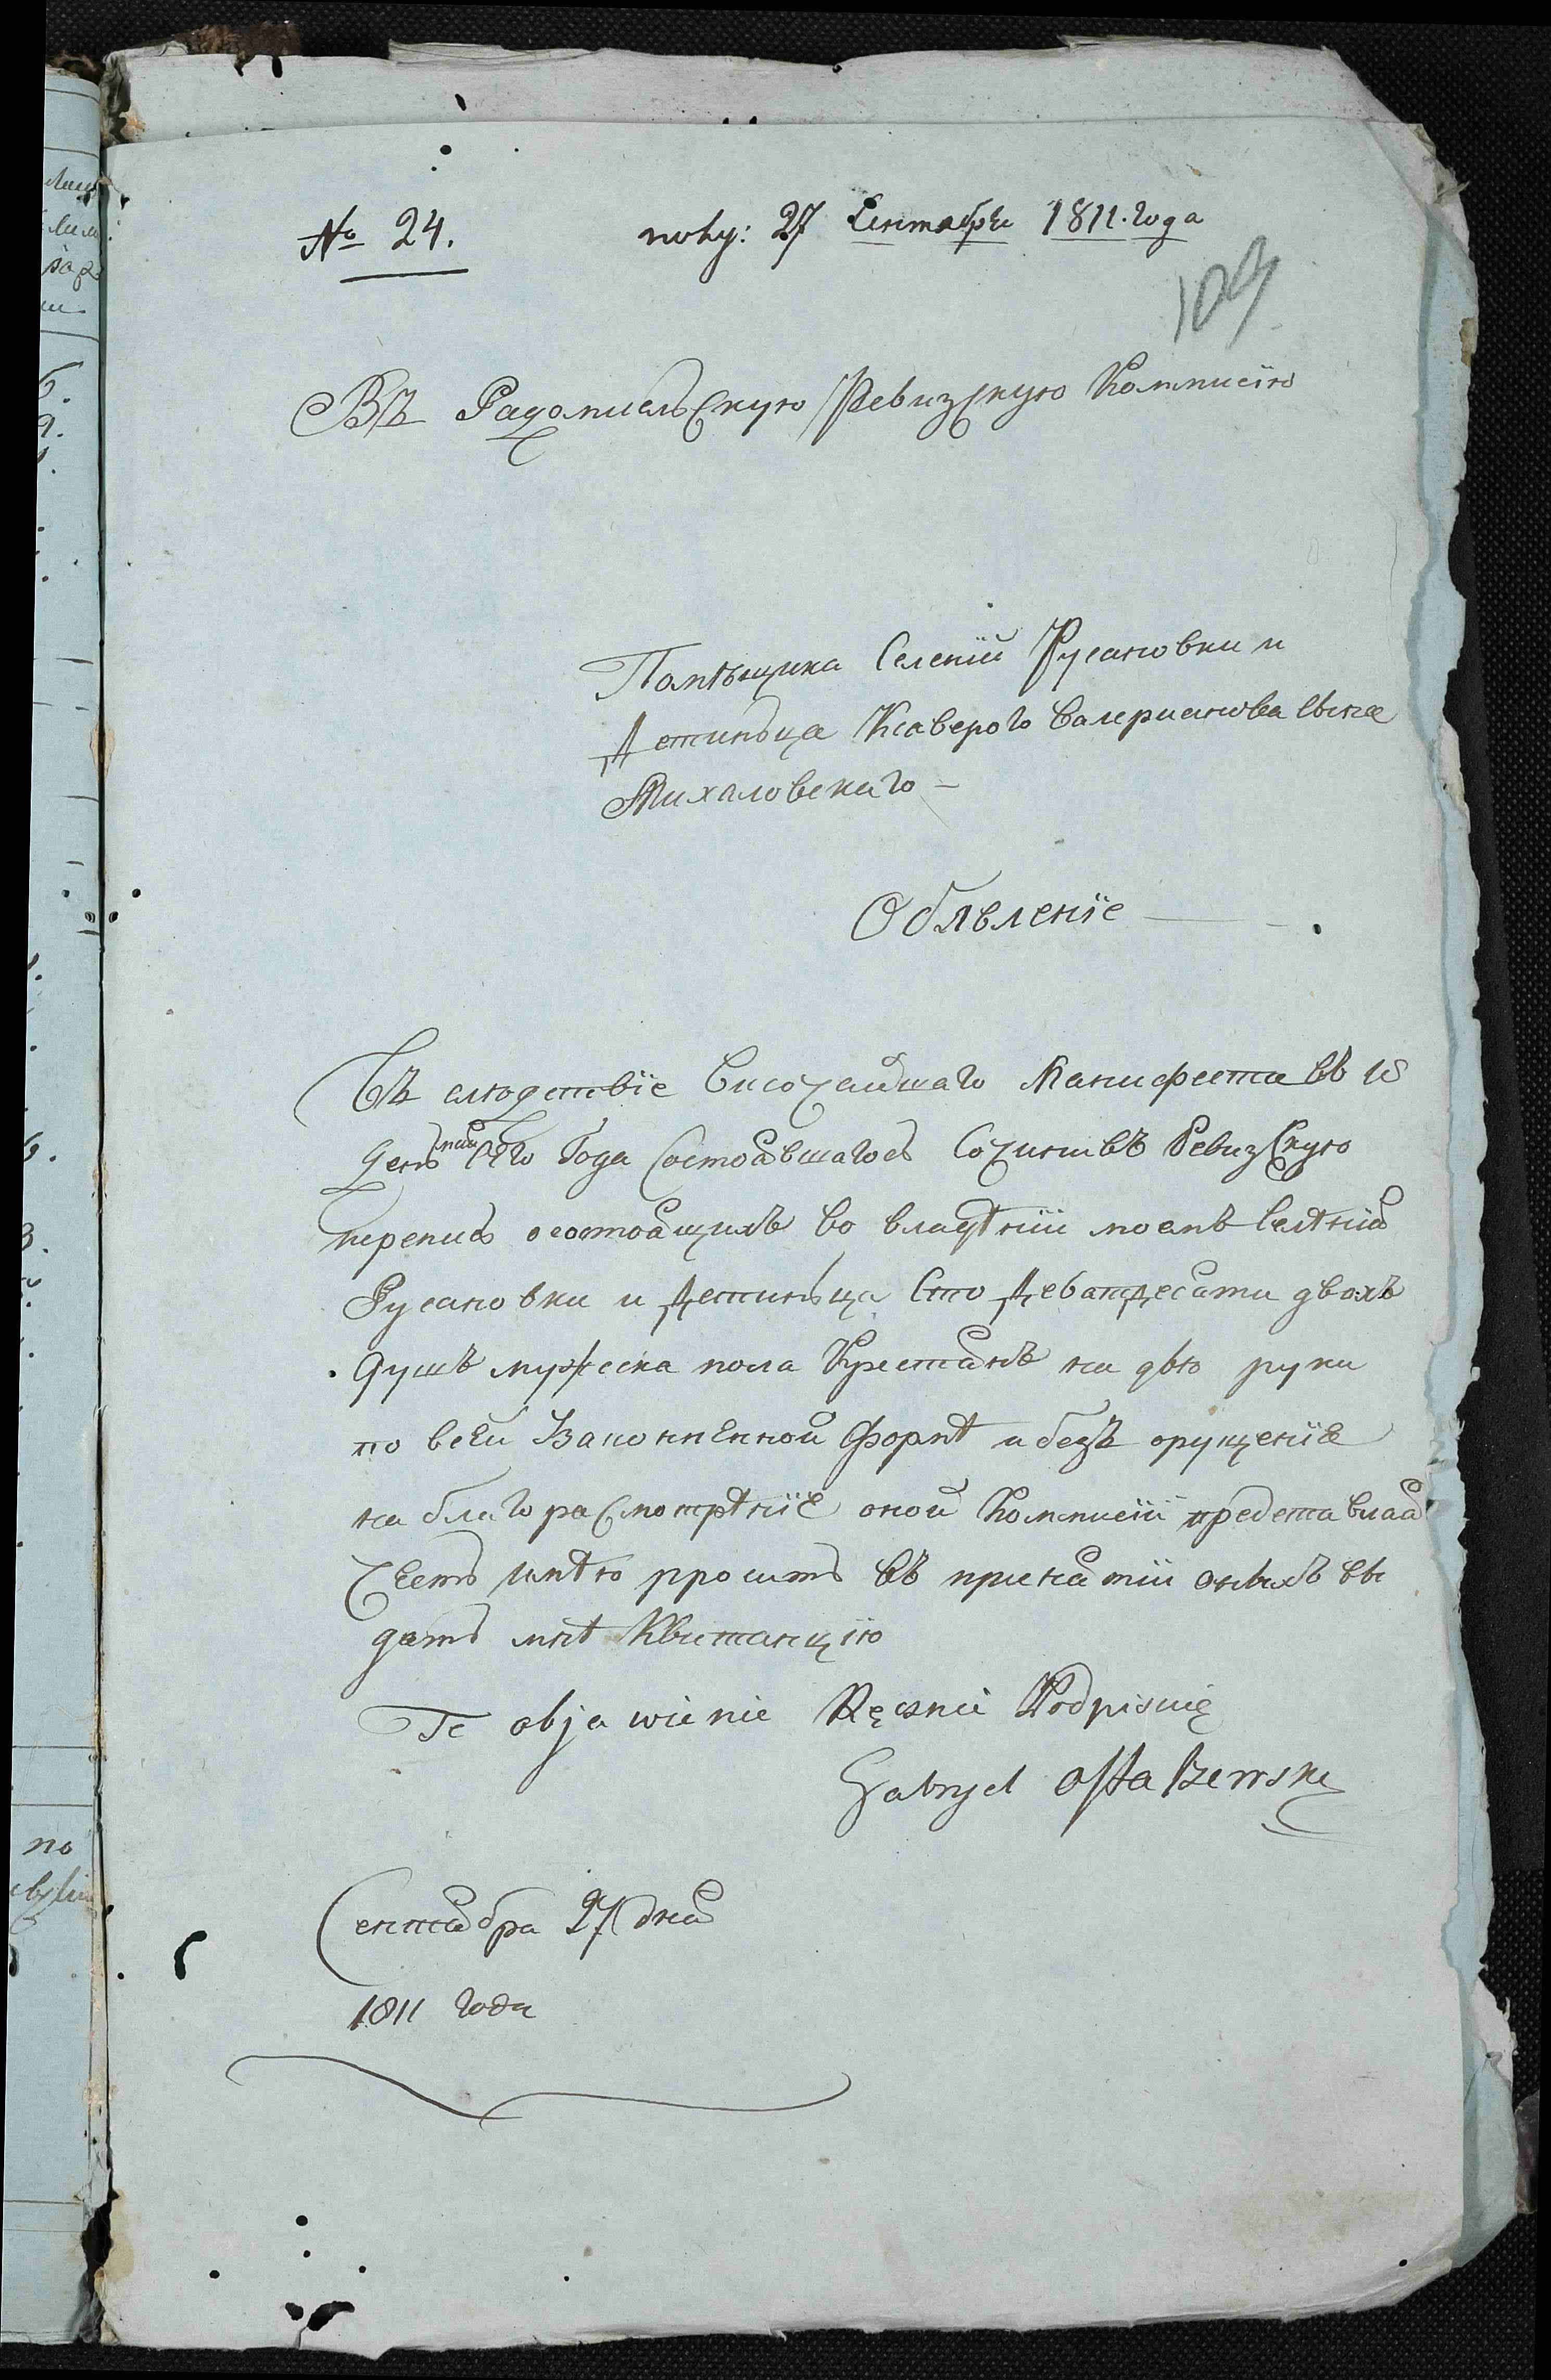 № 24.
получ: 27 Сентября 1811. года
109
Въ Радомисльскую Ревизскую Коммисїю
Помѣщика Селенїй Русановки и
Детинъца Ксаверого Валериянова сына
Михаловскаго —
Обявленїе
Въ слюдствїе Височайшаго Манифеста въ 18
день маїя сего года Состоявшагось Сочинивъ Ревизскую
перепись осостоящихъ во владѣнїи моемъ Селѣнїя
Русановки и Детинъца Сто Девятдесяти двохъ
душъ мужеска пола Крестянъ на двю руки
по всей Законненной Формѣ и без
на благоразсмотрѣнїе оной Коммисїи представляя
Честь имѣю просить въ принятїи онихъ вы
дать мнѣ Квитанцїю
Te objawienie Ręcznie Podpisuię
Gabryel Ostaszewski
Сентября 27 дня
1811 года